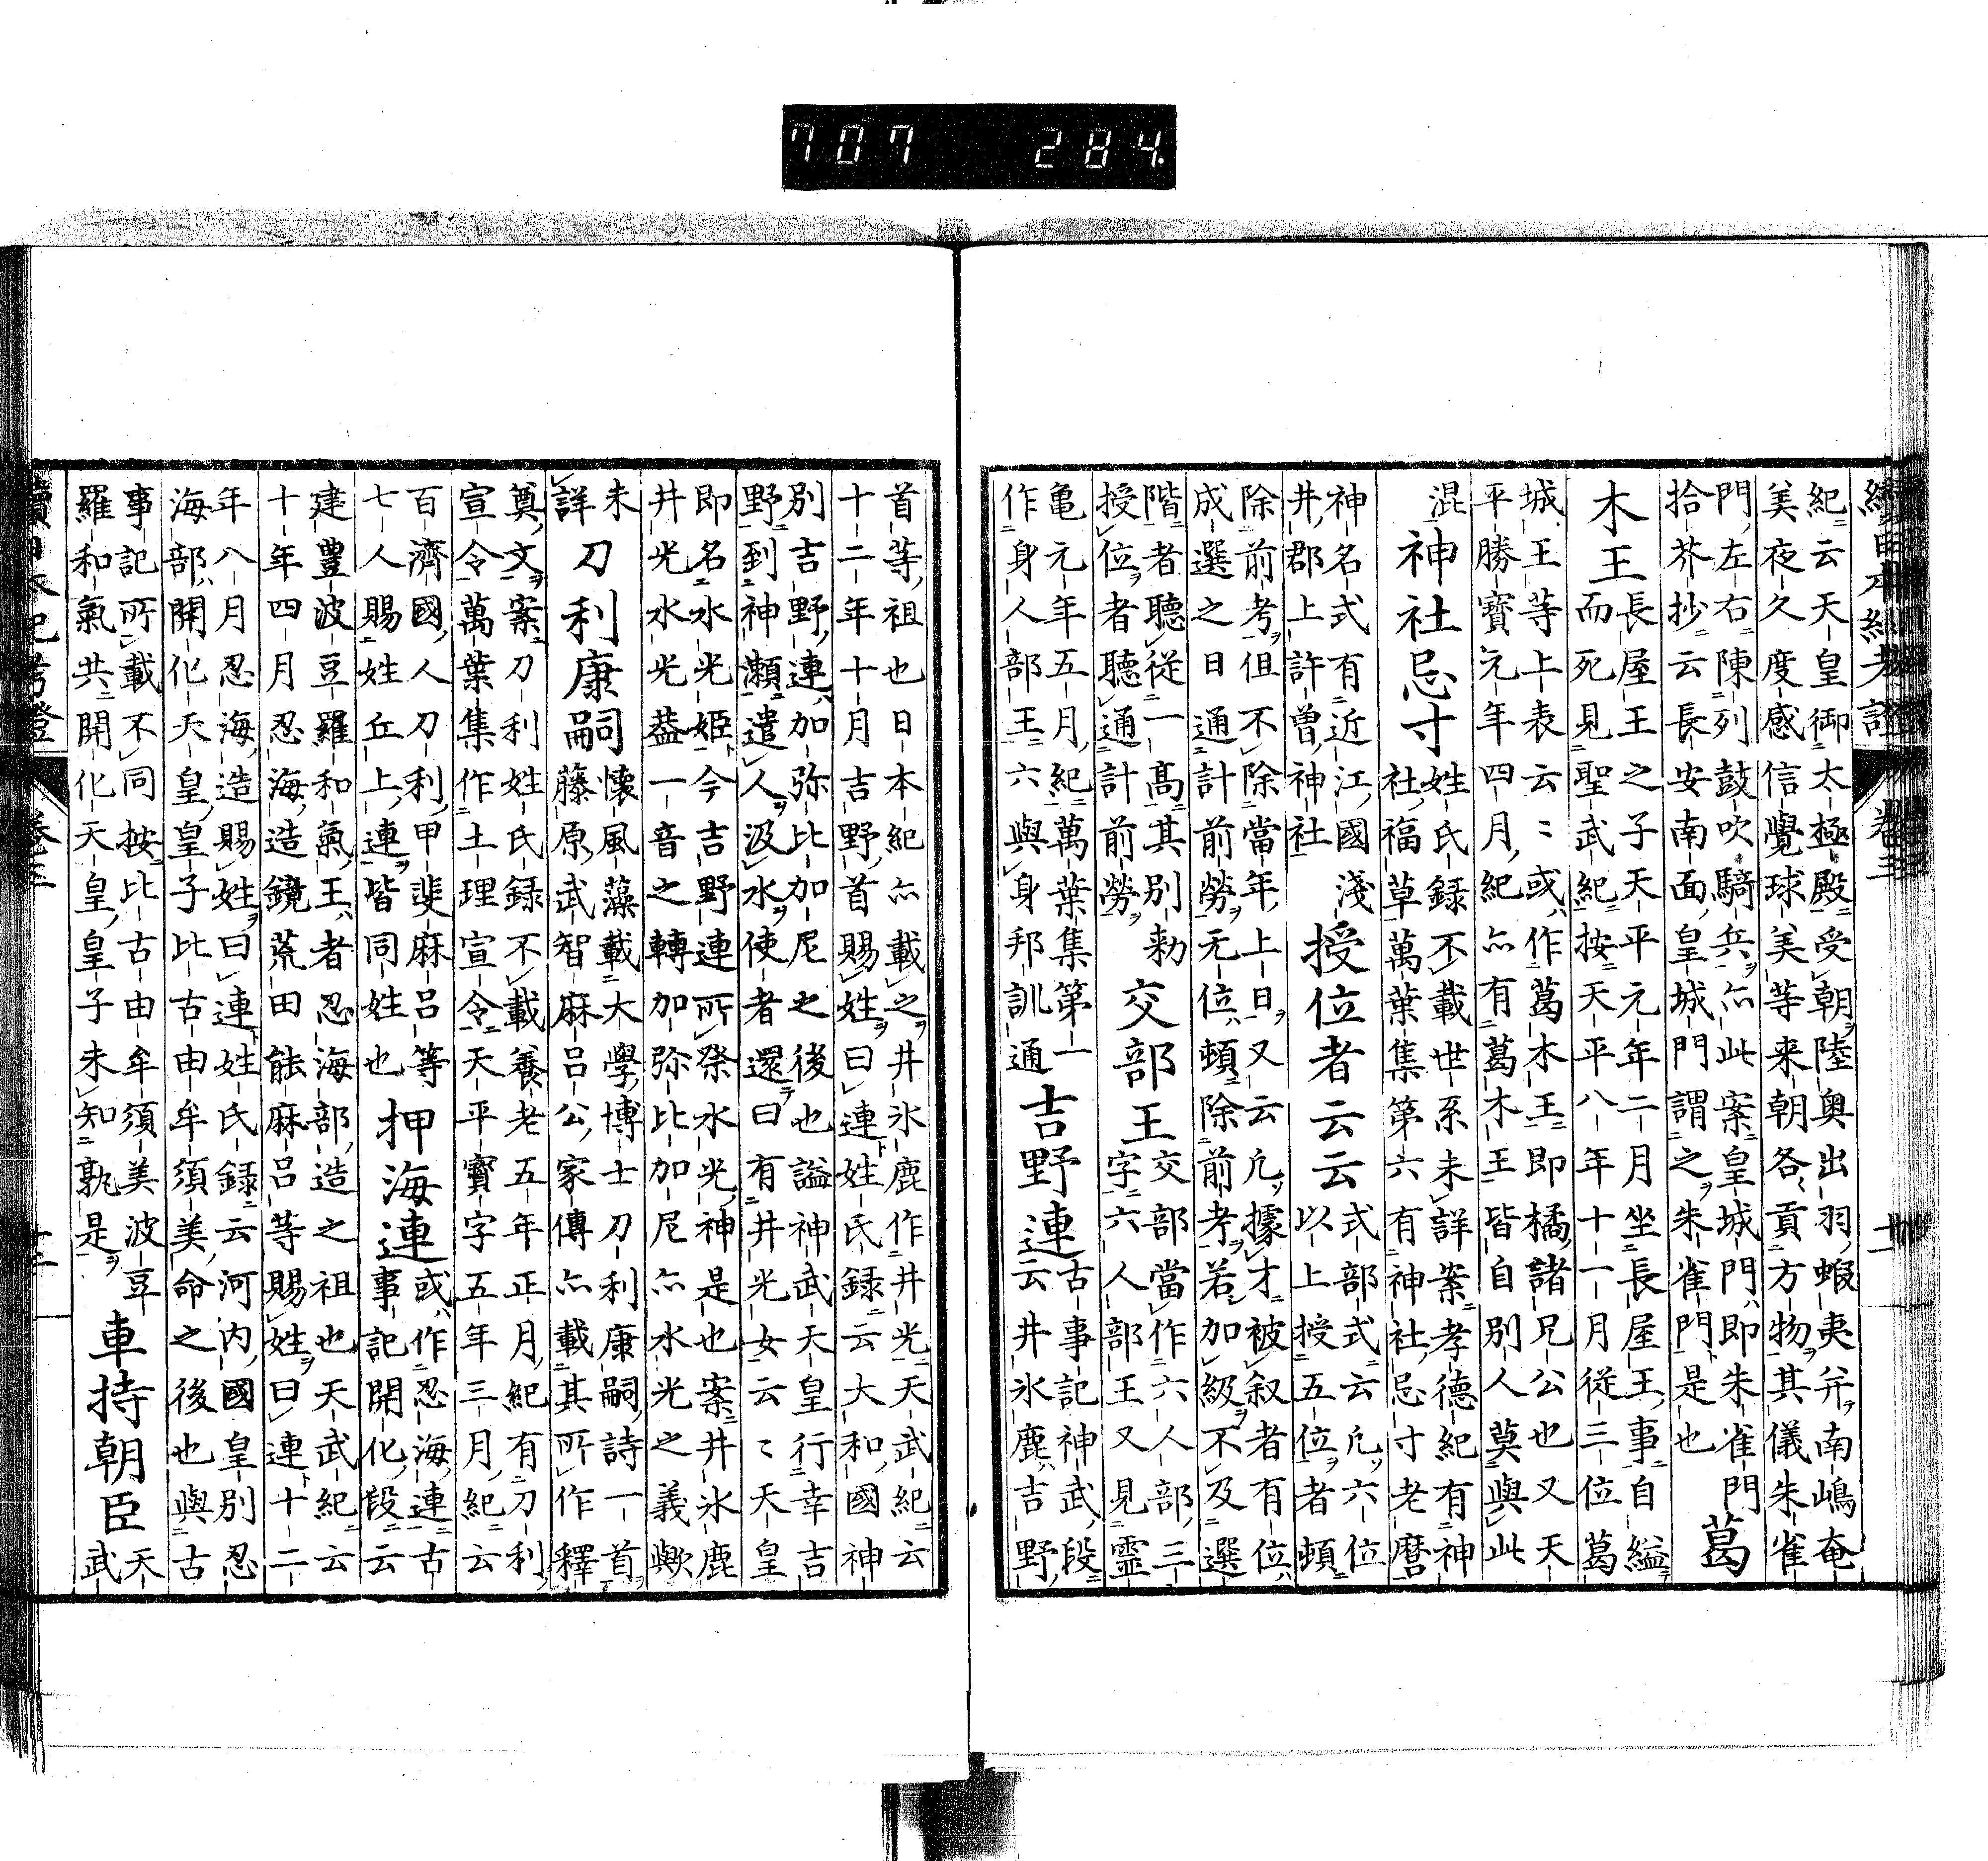 707 284
續日本紀考證 卷三 十二
紀云天皇御太極殿受朝陸奧出羽蝦夷幷南嶋奄
美夜久度感信覺球美等来朝各貢方物其儀朱雀
門左右陳列鼓吹騎兵亦此案皇城門即朱雀門
拾芥抄云長安南面皇城門謂之朱雀門是也
葛
木王
長屋王之子天平元年二月坐長屋王事自縊
而死見聖武紀按天平八年十一月從三位葛
城王等上表云〻或作葛木王即橘諸兄公也又天
平勝寶元年四月紀亦有葛木王皆自別人莫與此
混
神社忌寸
姓氏録不載世系未詳案孝德紀有神
社福草萬葉集第六有神社忌寸老麿
神名式有近江國淺
井郡上許曽神社
授位者云云
式部式云凢六位
以上授五位者頓
除前考但不除當年上日又云凢據才被叙者有位
成選之日通計前勞无位頓除前考若加級不及選
階者聽從一髙其別勅
授位者聽通計前勞
交部王
交部當作六人部三
字六人部王又見靈
亀元年五月紀萬葉集第一
作身人部王六與身邦訓通
吉野連
古事記神武段
云井氷鹿吉野
首等祖也日本紀亦載之井氷鹿作井光天武紀云
十二年十月吉野首賜姓曰連姓氏録云大和國神
別吉野連加弥比加尼之後也謚神武天皇行幸吉
野到神瀬遣人汲水使者還曰有井光女云〻天皇
即名水光姫今吉野連所祭水光神是也案井氷鹿
井光水光葢一音之轉加弥比加尼亦水光之義歟
未
詳
刀利康嗣
懐風藻載大學博士刀利康嗣詩一首
藤原武智麻呂公家傳亦載其所作釋
奠文案刀利姓氏録不載養老五年正月紀有刀利
宣令萬葉集作土理宣令天平寶字五年三月紀云
百濟國人刀利甲斐麻呂等
七人賜姓丘上連皆同姓也
押海連
或作忍海連古
事記開化段云
建豊波豆羅和氣王者忍海部造之祖也天武紀云
十年四月忍海造鏡荒田能麻呂等賜姓曰連十二
年八月忍海造賜姓曰連姓氏録云河内國皇別忍
海部開化天皇皇子比古由牟須美命之後也與古
事記所載不同按比古由牟須美波豆
羅和氣共開化天皇皇子未知孰是
車持朝臣
天
武
續日本紀考證 卷三 十二